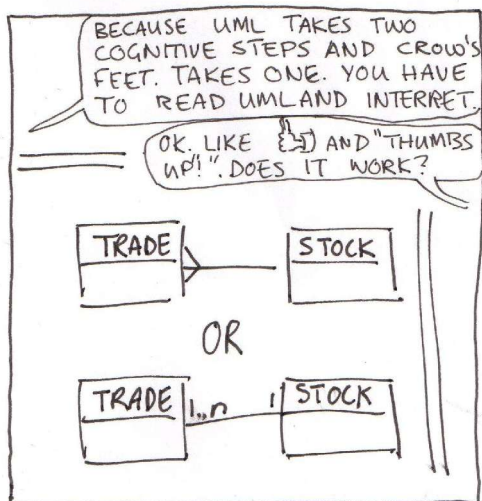 BECAUSE UML TAKES TWO
COGNITIVE STEPS AND CROW'S
FEET. TAKES ONE. YOU HAVE
TO READ UML AND INTERRET.
OK. LIKE AND "THUMBS
UP!". DOES IT WORK?
TRADE STOCK
OR
TRADE 1..n 1 STOCK